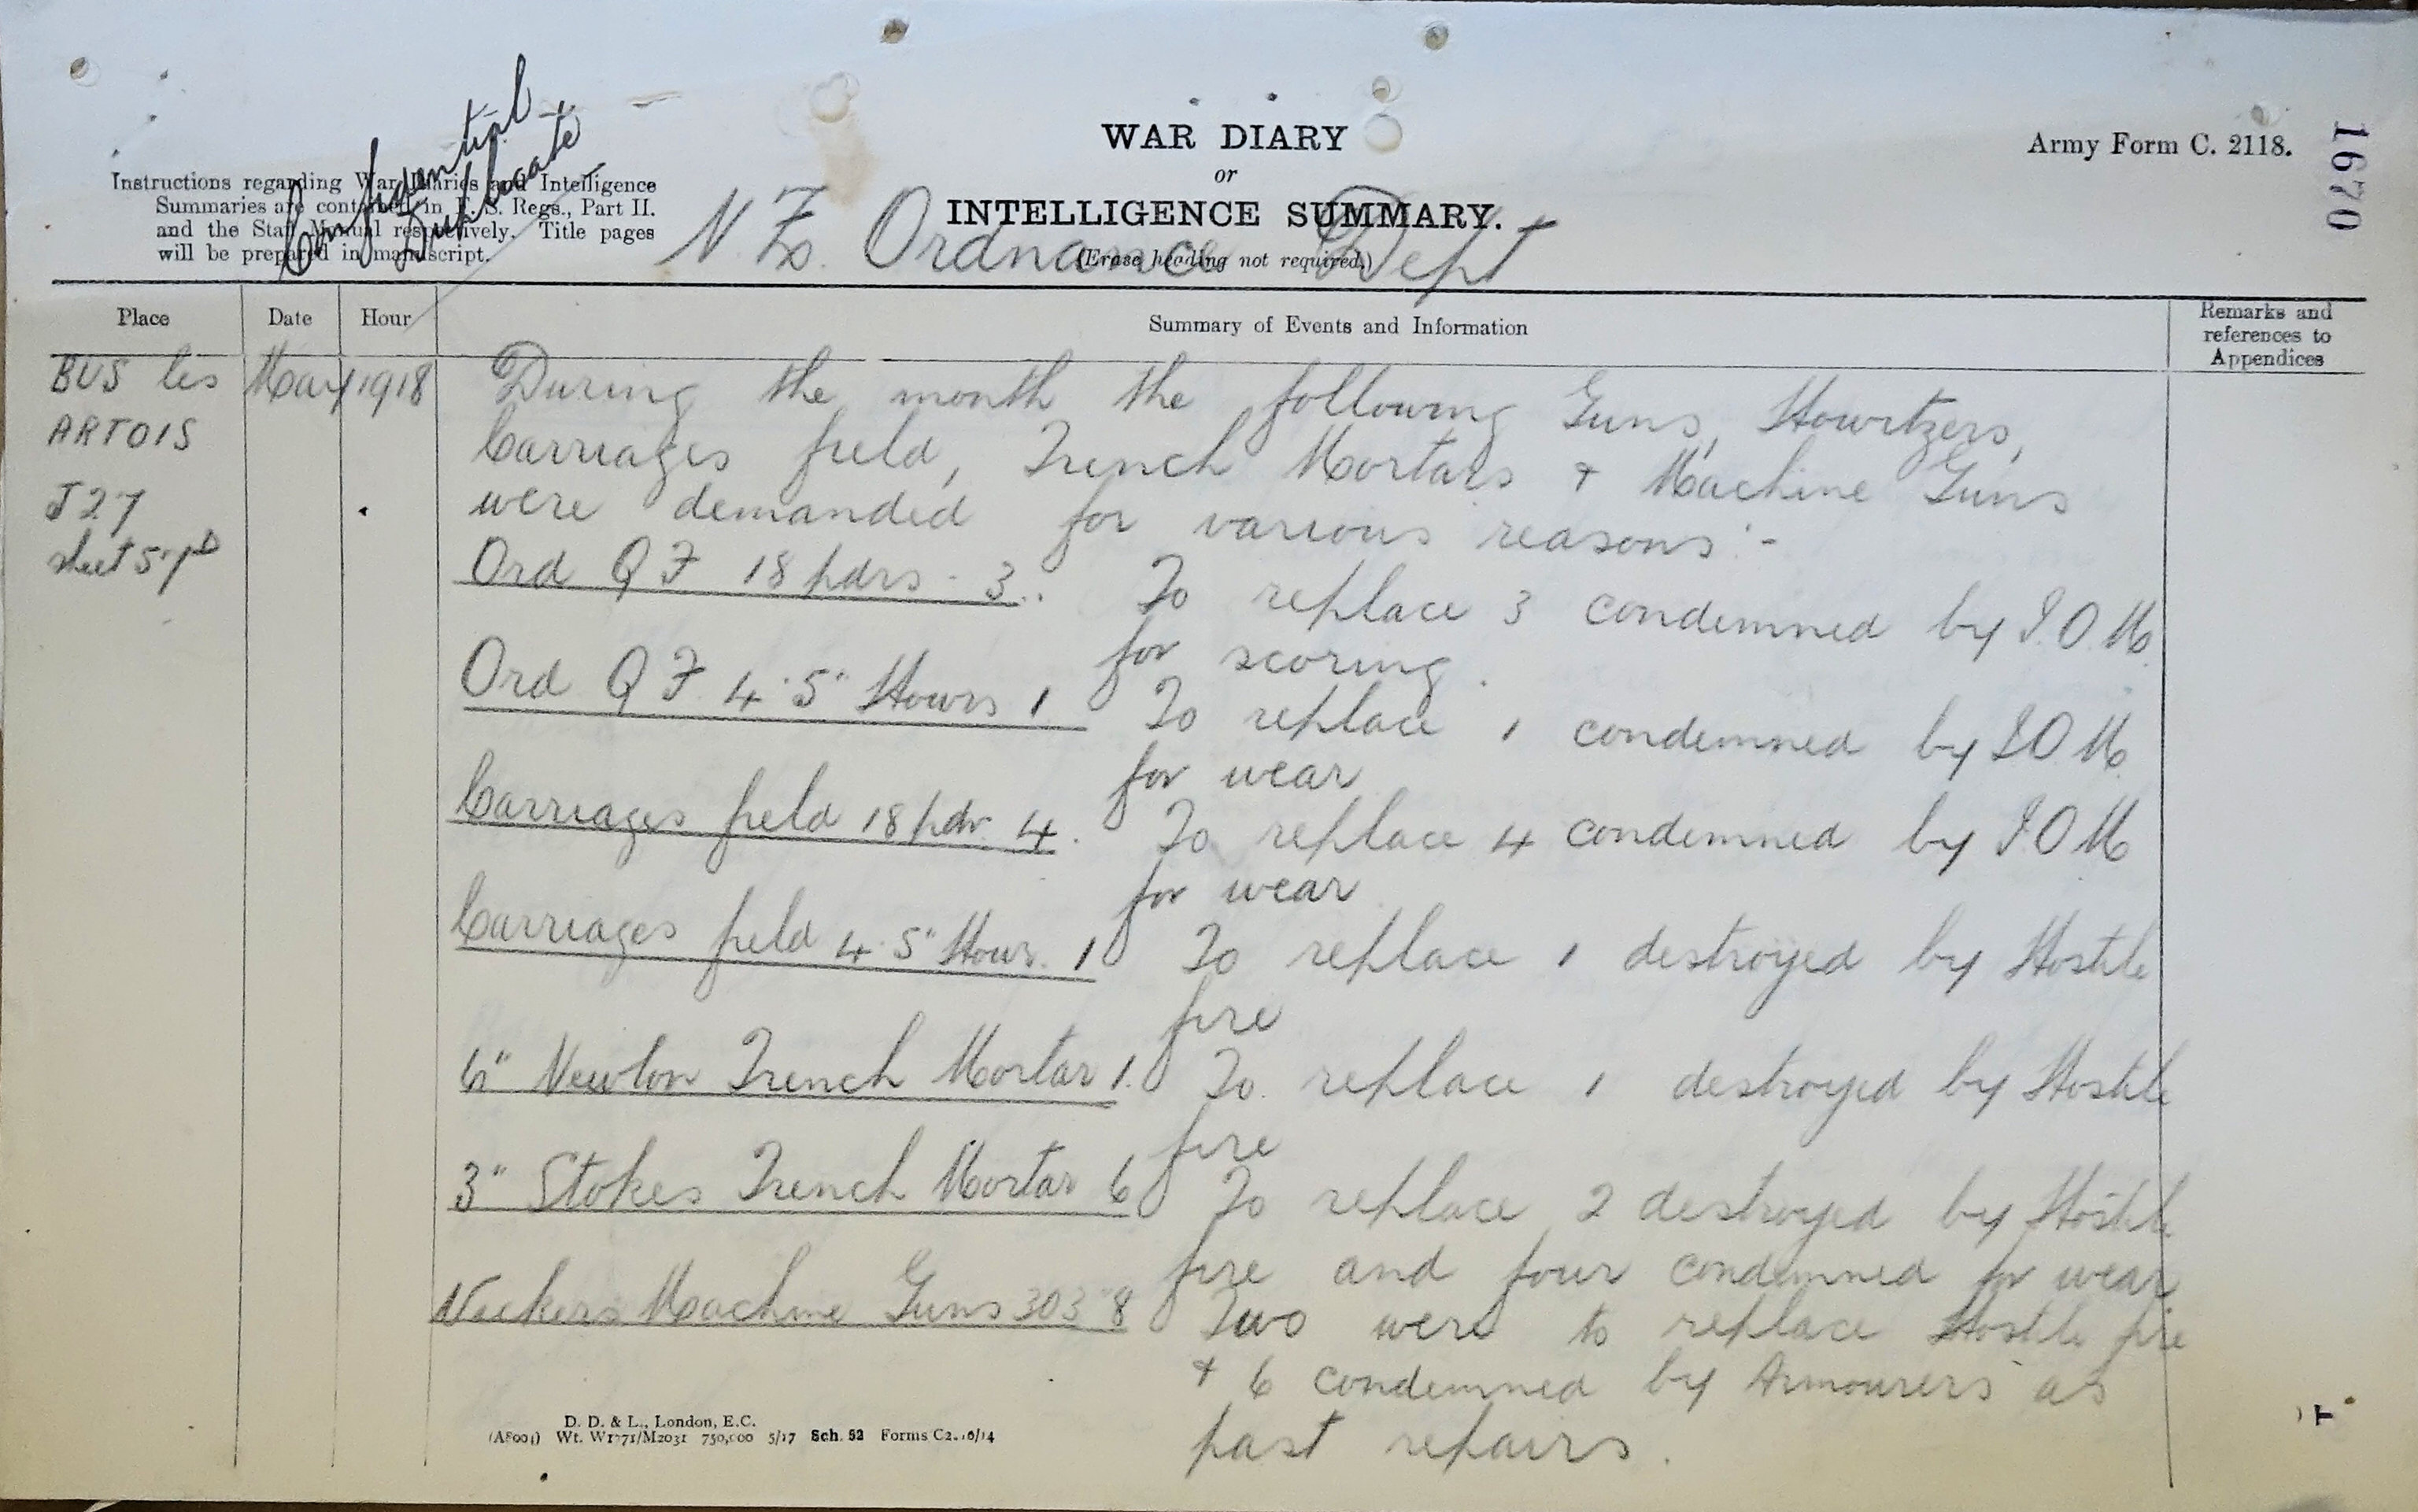 Confidential
Duplicate
WAR DIARY
or
INTELLIGENCE SUMMARY.
(Erase heading not required.)
Army Form C. 2118.
1670
Instructions regarding War Diaries and Intelligence
Summaries are contained in F. S. Regs., Part II.
and the Staff Manual respectively. Title pages
will be prepared in manuscript.
N.Z. Ordnance Dept
Place Date Hour Summary of Events and Information
Remarks and
references to
Appendices
BUS les May 1918
ARTOIS
J27
sheet 57D
During the month the following Guns, Howitzers,
Carriages field, Trench Mortars + Machine Guns
were demanded for various reasons :-
Ord QF 18 pdrs - 3. To replace 3 condemned by I.O.M.
for scoring.
Ord QF 4.5" Hows 1 To replace 1 condemned by IOM.
for wear
Carriages field 18 pdr. 4. To replace 4 condemned by I.O.M
for wear
Carriages field 4.5" How. 1 To replace 1 destroyed by Hostile
fire
6" Newton Trench Mortar 1. To replace 1 destroyed by Hostile
fire
3" Stokes Trench Mortar 6 To replace 2 destroyed by Hostile
fire and four condemned for wear.
Vickers Machine Guns 303" 8 Two were to replace Hostile fire
+ 6 condemned by Armourers as
past repairs.
D. D. & L., London, E.C.
(A8001) Wt. W1771/M2031 750,000 5/17 Sch. 52 Forms C2118/14